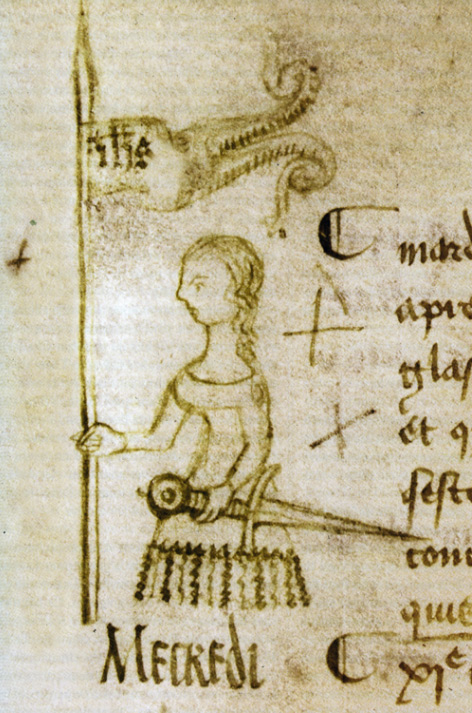 ihs
mard
apre
glas
et q
feste
quie
Mecredi
xie